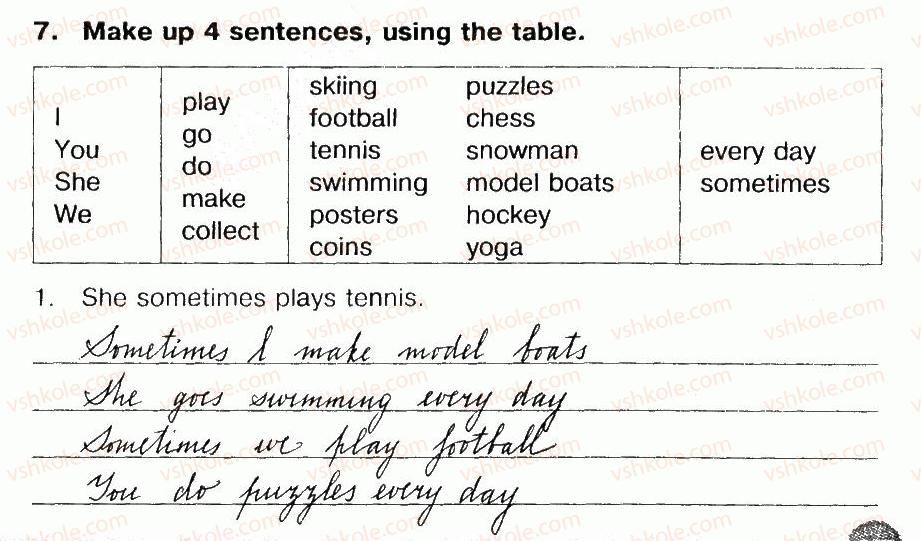 7. Make up 4 sentences, using the table.
I
You
She
We
play
go
do
make
collect
skiing
football
tennis
swimming
posters
coins
puzzles
chess
snowman
model boats
hockey
yoga
every day
sometimes
1. She sometimes plays tennis.
Sometimes I make model boats
She goes swimming every day
Sometimes we play football
You do puzzles every day
vshkole.com